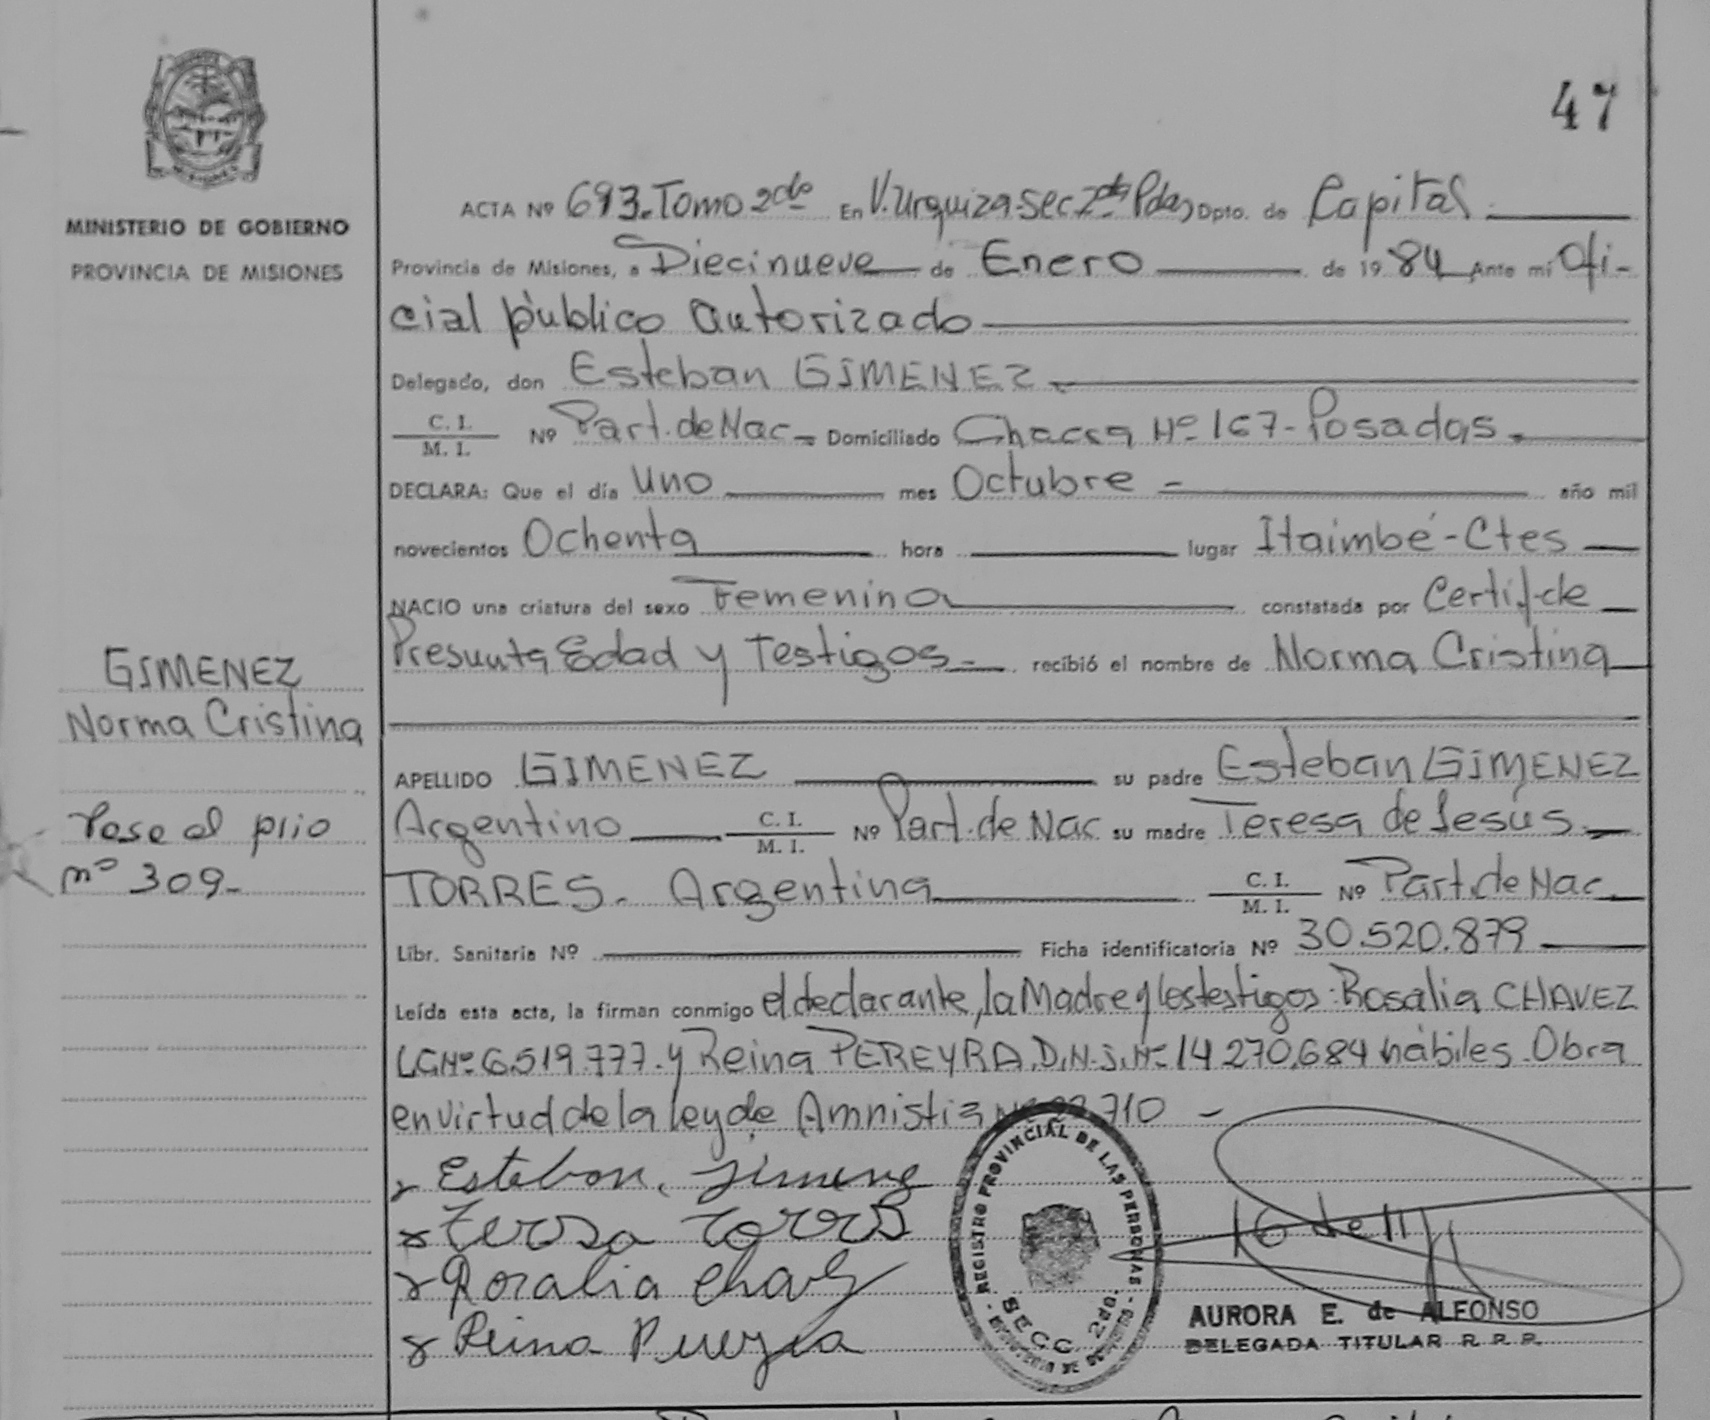 47
MINISTERIO DE GOBIERNO
PROVINCIA DE MISIONES
ACTA Nº 693. Tomo 2do En V. Urquiza Sec 2da Pdas Dpto. de Capital
Provincia de Misiones, a Diecinueve de Enero de 1984 Ante mi Ofi-
cial público autorizado
Delegado, don Esteban GIMENEZ
C. I.
M. I. Nº Part. de Nac - Domiciliado Chacra Nº 167 - Posadas.
DECLARA: Que el día Uno mes Octubre - año mil
novecientos Ochenta hora lugar Itaimbé - Ctes
NACIO una criatura del sexo Femenino constatada por Certif. de
Presunta Edad y Testigos - recibió el nombre de Norma Cristina
GIMENEZ
Norma Cristina
APELLIDO GIMENEZ su padre Esteban GIMENEZ
Argentino C. I.
M. I. Nº Part. de Nac su madre Teresa de Jesús
TORRES. Argentina C. I.
M. I. Nº Part. de Nac
Pase al prio
nº 309-
Libr. Sanitaria Nº Ficha identificatoria Nº 30.520.879
Leída esta acta, la firman conmigo el declarante, la Madre y los testigos: Rosalia CHAVEZ
LC Nº 6.519.777. y Reina PEREYRA D.N.I. Nº 14.270.684 hábiles. Obra
en virtud de la ley de Amnistia Nº 22.710 -
Esteban Jimenez
Teresa Torres
Rosalia Chavez
Reina Pereyra
REGISTRO PROVINCIAL DE LAS PERSONAS
SECC. 2da.
AURORA E. de ALFONSO
DELEGADA TITULAR R. P. P.